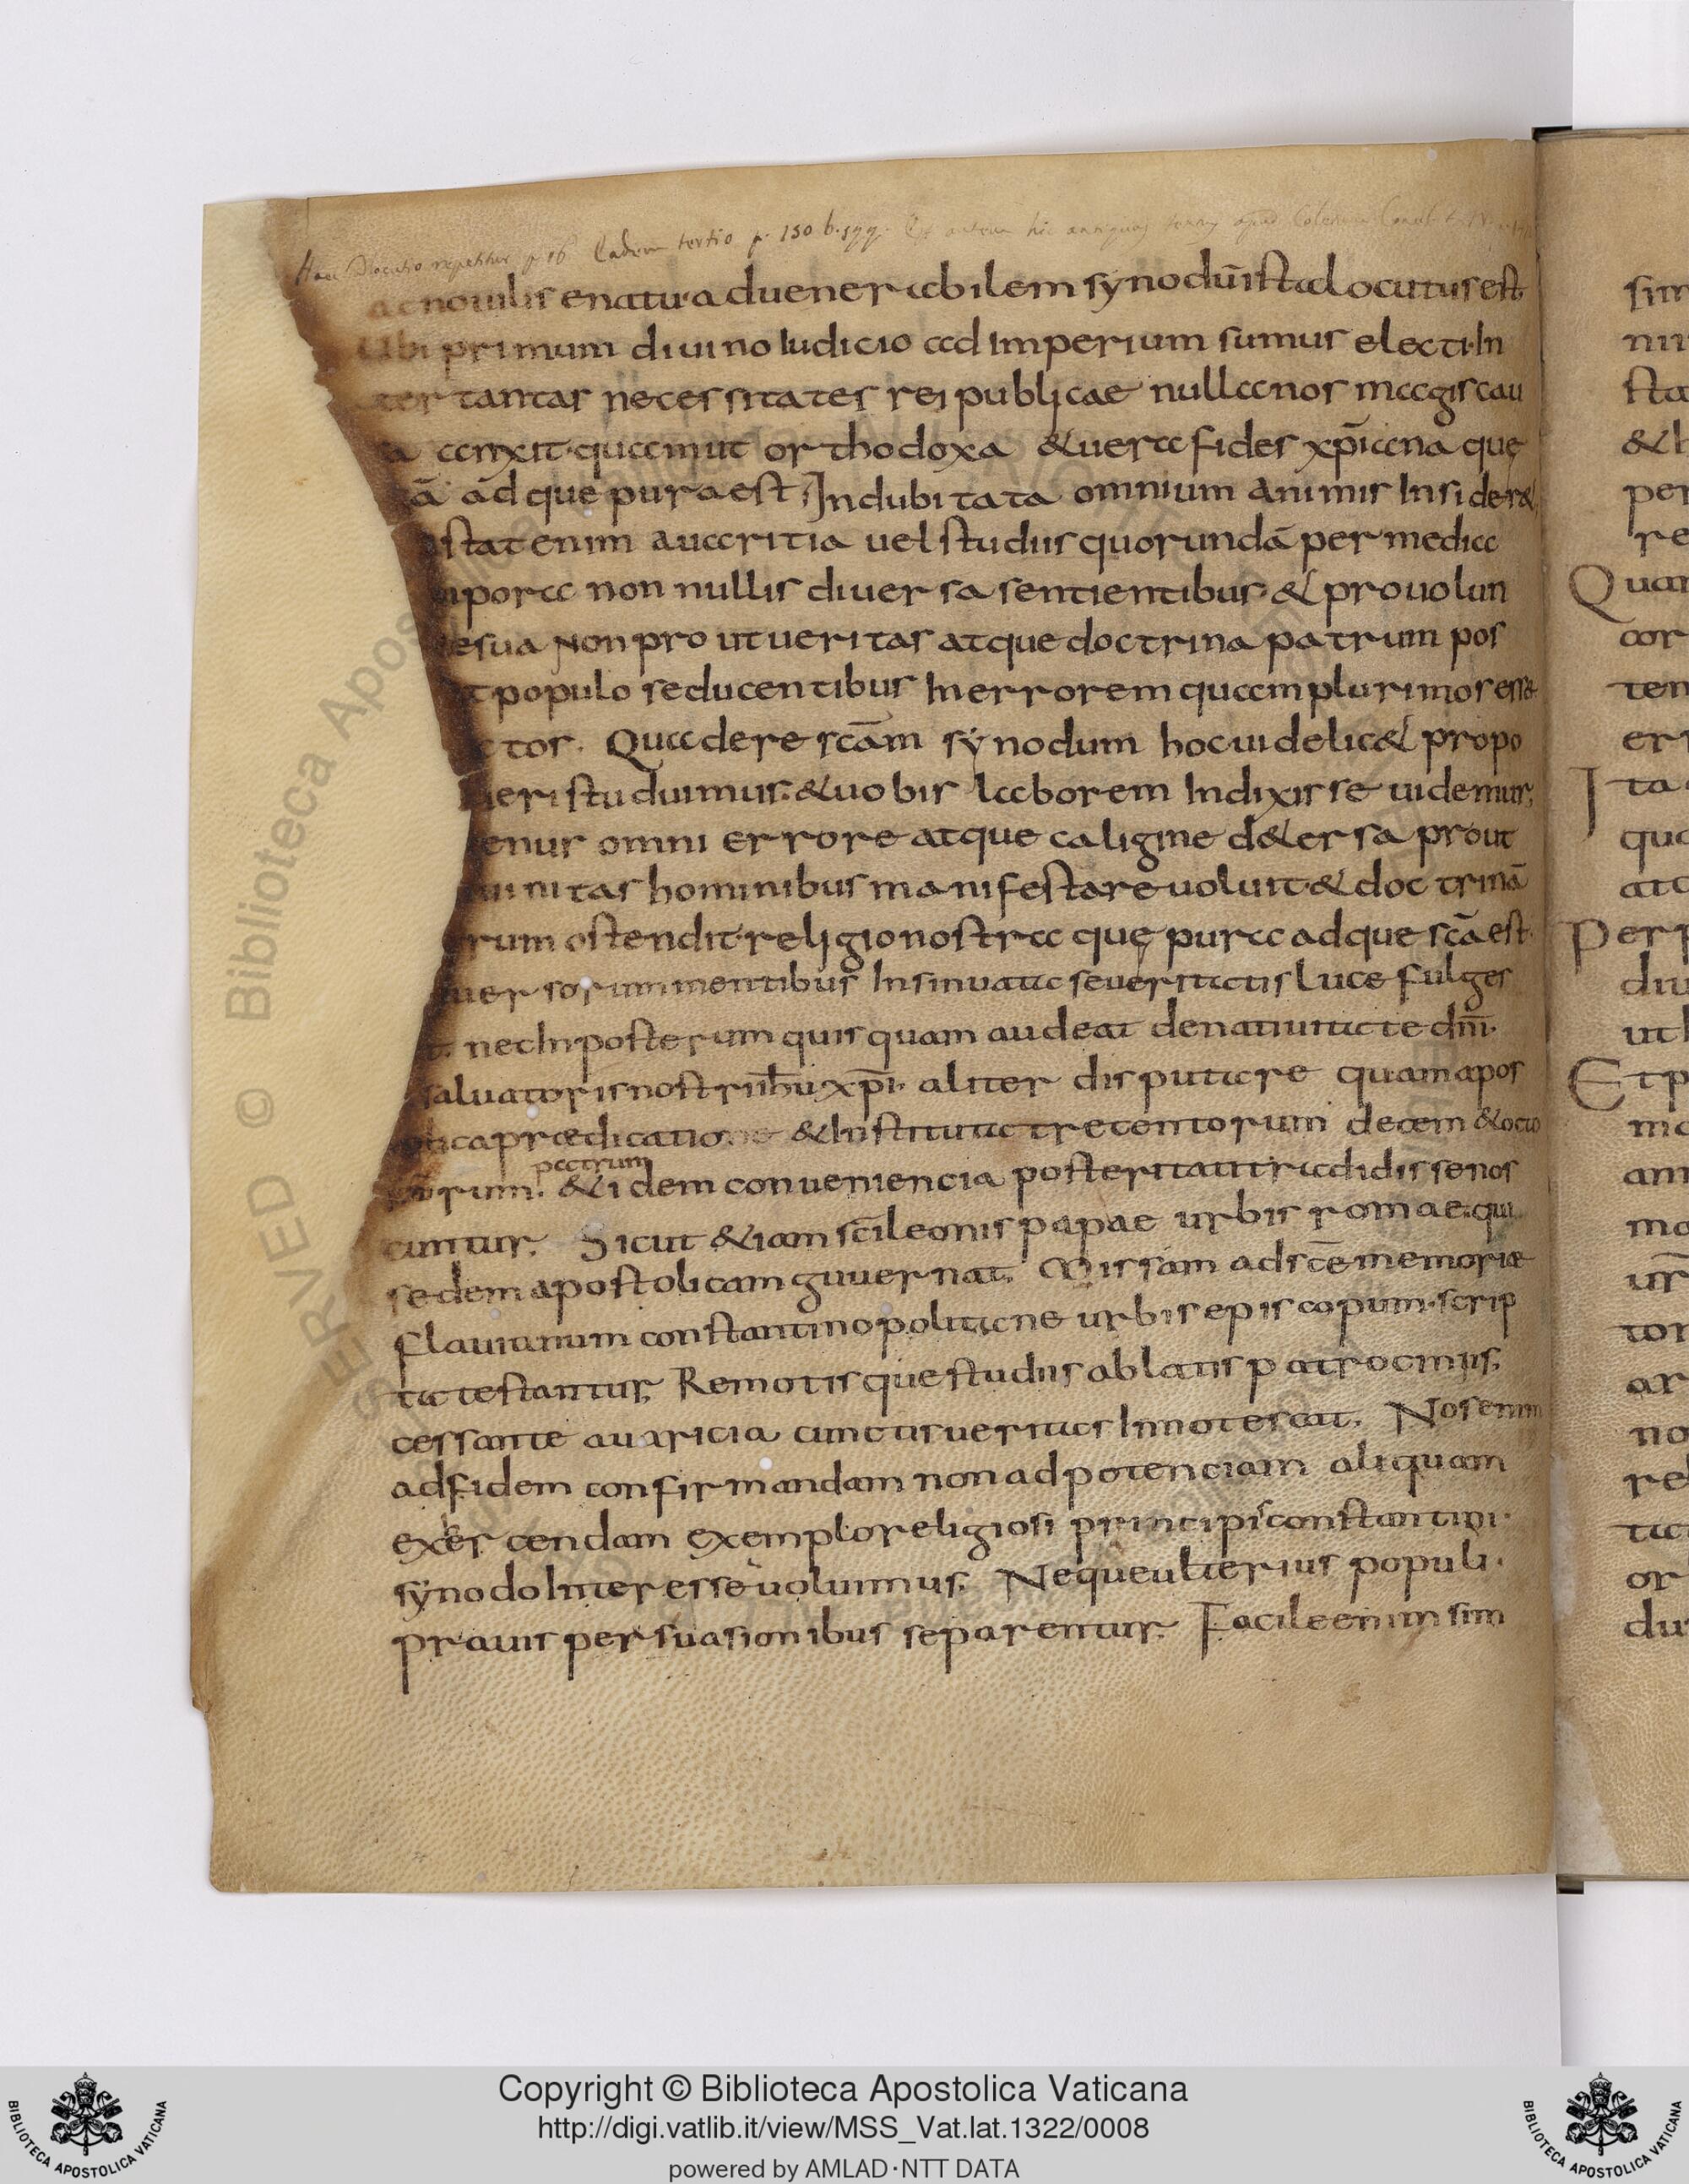 Haec Allocutio repetitur p. 16 Eadem tertio p. 150 b. sqq.
ac nouilis enatu aduenerabilem synodu ista locutus est
Ubi primum diuino Iudicio ad Imperium sumus electi. In
ter tantas necessitates rei publicae nulla nos magis cau
a anxit quam ut orthodoxa & uera fides xp̄iana quę
cā ad que pura est. Indubitata omnium animis Insider&
stat enim auaritia uel studiis quorundā per media
mpora non nullis diuersa sentientibus & pro uolun
e sua Non pro ut ueritas atque doctrina patrum pos
t populo seducentibus In errorem quam plurimos esse
ctos. Qua de re scām synodum hoc uidelic& propo
ieri studuimus. & uobis laborem Indixisse uidemur,
enus omni errore atque caligine d&ersa prout
uinitas hominibus manifestare uoluit & doctrinā
rum ostendit religio nostra quę pura ad que scā est.
uersorum mentibus Insinuata se ueritatis luce fulges
t. nec In posterum quisquam audeat de natiuitate dn̄i.
saluatoris nostri ih̄u xp̄i. aliter disputare quam apos
olica praedicatio & Instituta trecentorum decem & octo
patrum
orum. & idem conueniencia posteritati tradidisse nos
cuntur. Sicut &iam scī leonis papae urbis romae qui
sedem apostolicam guuernat. Missam ad scē memoriæ
Flauianum constantinopolitane urbis episcopum scrip
ta testantur. Remotis que studiis ablatis patrociniis.
cessante auaricia cunctis ueritas Innotescat. Nos enim
ad fidem confirmandam non ad potenciam aliquam
exercendam exemplo religiosi principis constantini.
synodo Interesse uoluimus. Neque ulterius populi.
prauis persuasionibus separentur. Facile enim sim
sim
Quan
cor
ten
er
Ita
qua
atq
Per
diu
ut
Et p
ma
no
re
or
BIBLIOTECA APOSTOLICA VATICANA
Copyright © Biblioteca Apostolica Vaticana
http://digi.vatlib.it/view/MSS_Vat.lat.1322/0008
powered by AMLAD·NTT DATA
BIBLIOTECA APOSTOLICA VATICANA